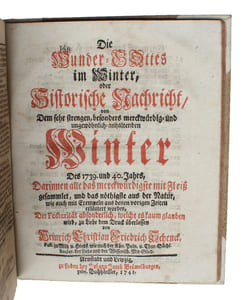 Die
Wunder-GOttes
im Winter,
oder
Historische Nachricht/
von
Dem sehr strengen, besonders merckwürdig- und
ungewöhnlich-anhaltenden
Winter
Des 1739. und 40. Jahrs,
Darinnen alle das merckwürdigste mit Fleiß
gesammlet, und das nöthigste aus der Natur,
wie auch mit Exempeln aus denen vorigen Zeiten
erläutert worden,
Der Posterität absonderlich, welche es kaum glauben
wird, zu Liebe dem Druck überlassen
von
Heinrich Christian Friedrich Schenck,
Arnstadt und Leipzig,
zu finden bey Johann Jacob Beumelburgen,
Buchhändler, 1741.